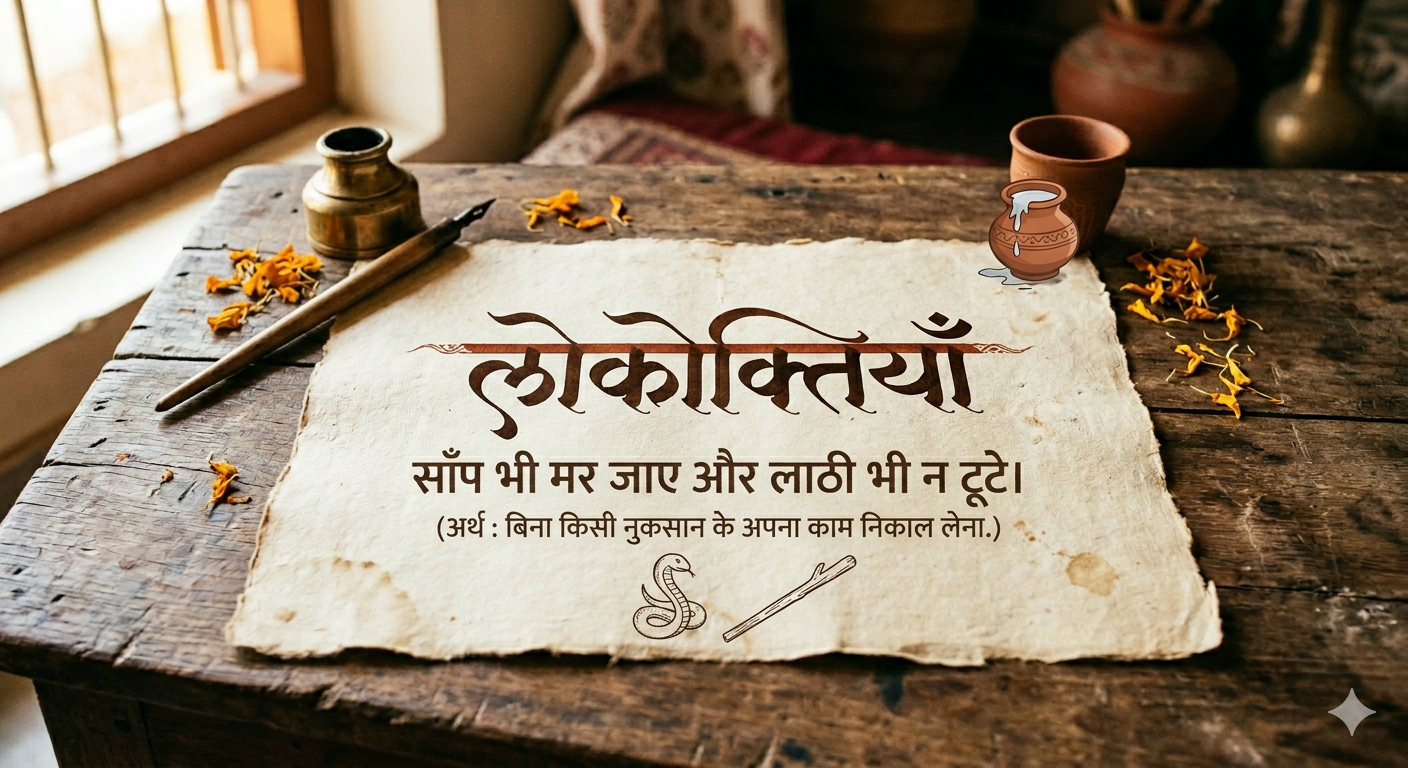 लोकोक्तियाँ
साँप भी मर जाए और लाठी भी न टूटे।
(अर्थ : बिना किसी नुकसान के अपना काम निकाल लेना.)